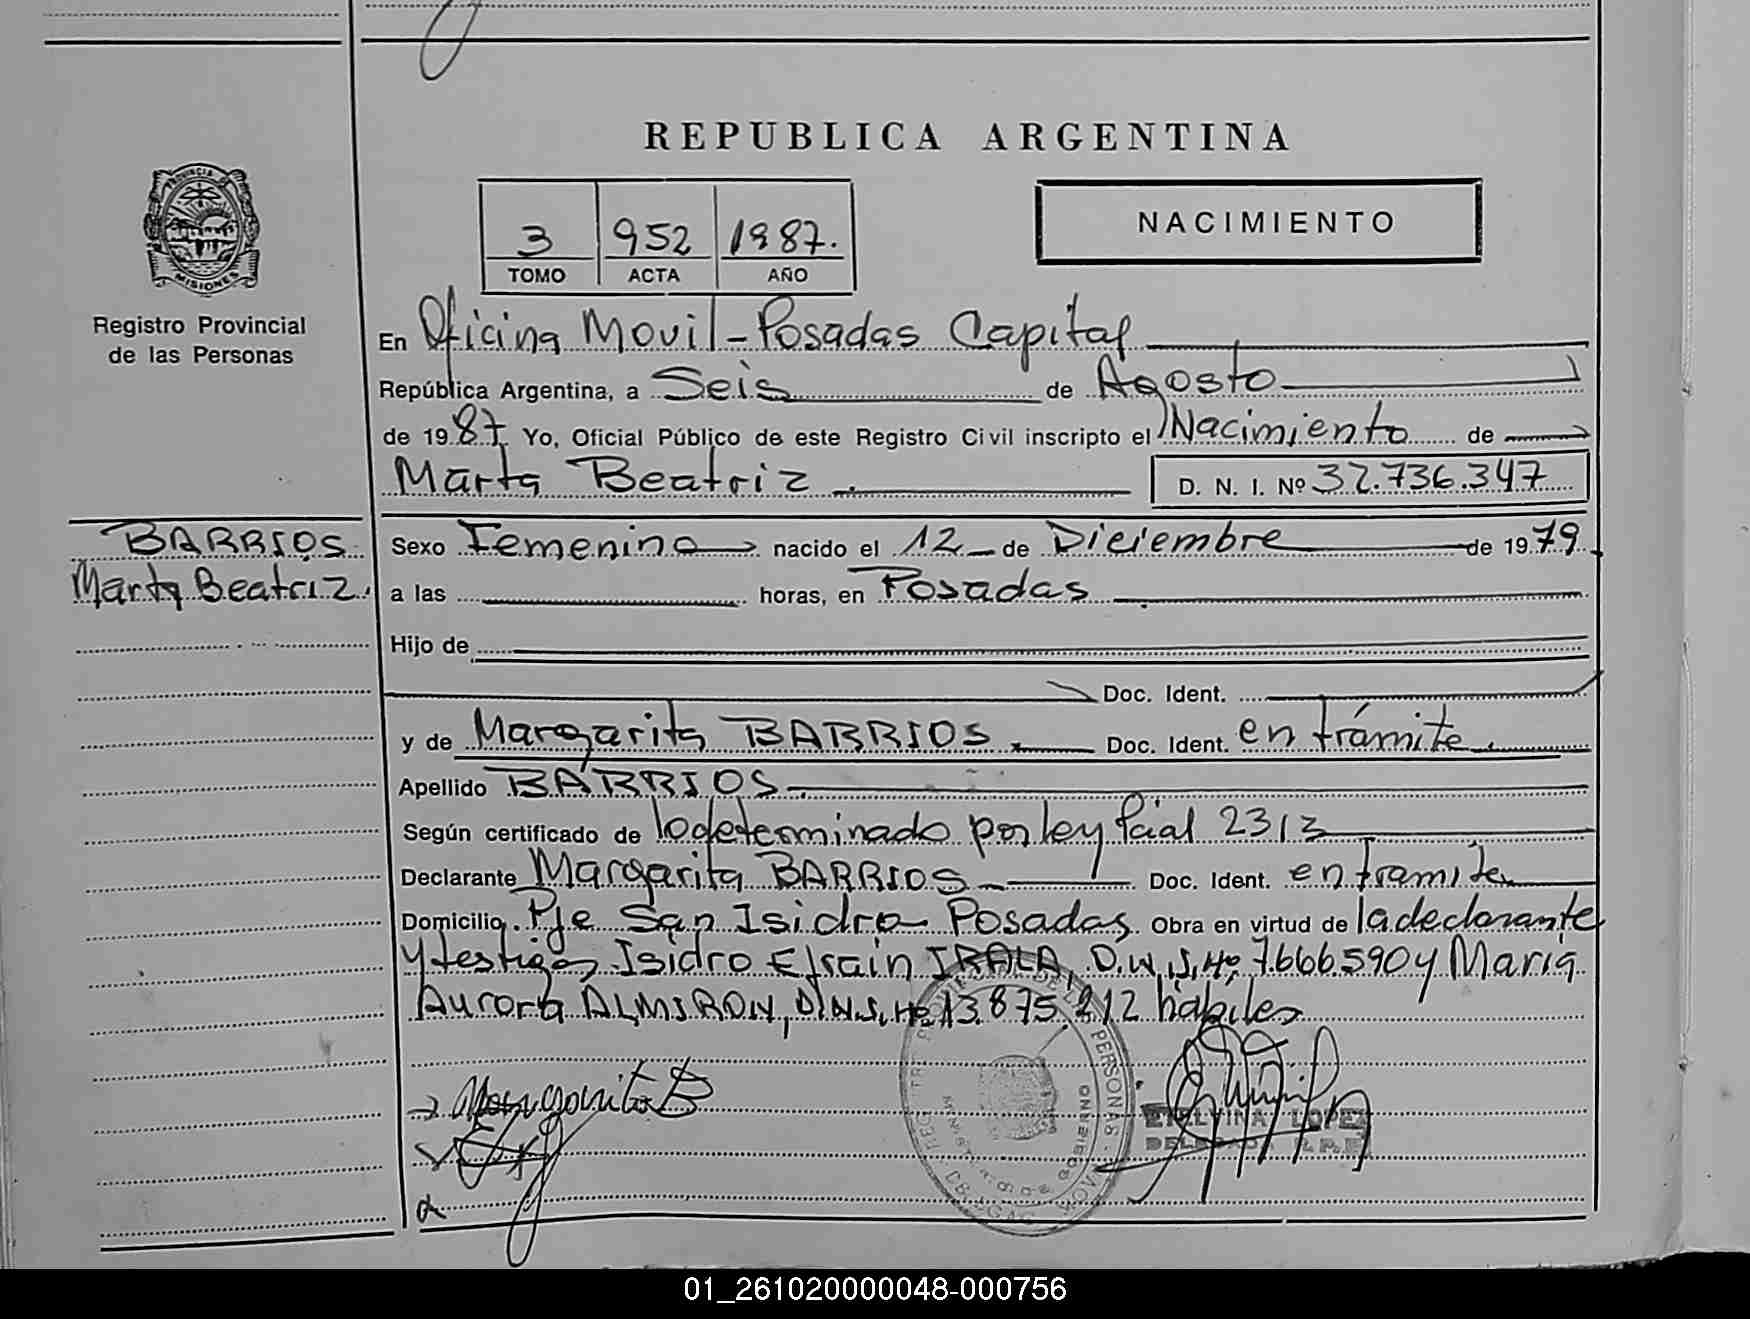 REPUBLICA ARGENTINA
PROVINCIA DE
MISIONES
Registro Provincial
de las Personas
3 952 1987.
TOMO ACTA AÑO
NACIMIENTO
En Oficina Movil - Posadas Capital
República Argentina, a Seis de Agosto
de 1987 Yo, Oficial Público de este Registro Civil inscripto el Nacimiento de
Marta Beatriz. D. N. I. Nº 32.736.347
BARRIOS
Marta Beatriz.
Sexo Femenino nacido el 12 de Diciembre de 1979.
a las horas, en Posadas
Hijo de
Doc. Ident.
y de Margarita BARRIOS. Doc. Ident. en trámite.
Apellido BARRIOS.
Según certificado de lo determinado por ley Pcial 2313
Declarante Margarita BARRIOS Doc. Ident. en tramite
Domicilio Pje San Isidro Posadas. Obra en virtud de la declarante
y testigos Isidro Efraín IRALA, D.N.I. Nº 7.666.590 y María
Aurora ALMIRON, D.N.I. Nº 13.875.212 hábiles
Margarita B
ETELVINA LOPEZ
DELEGADA R.P.P.
PERSONAS
GOBIERNO
01_261020000048-000756